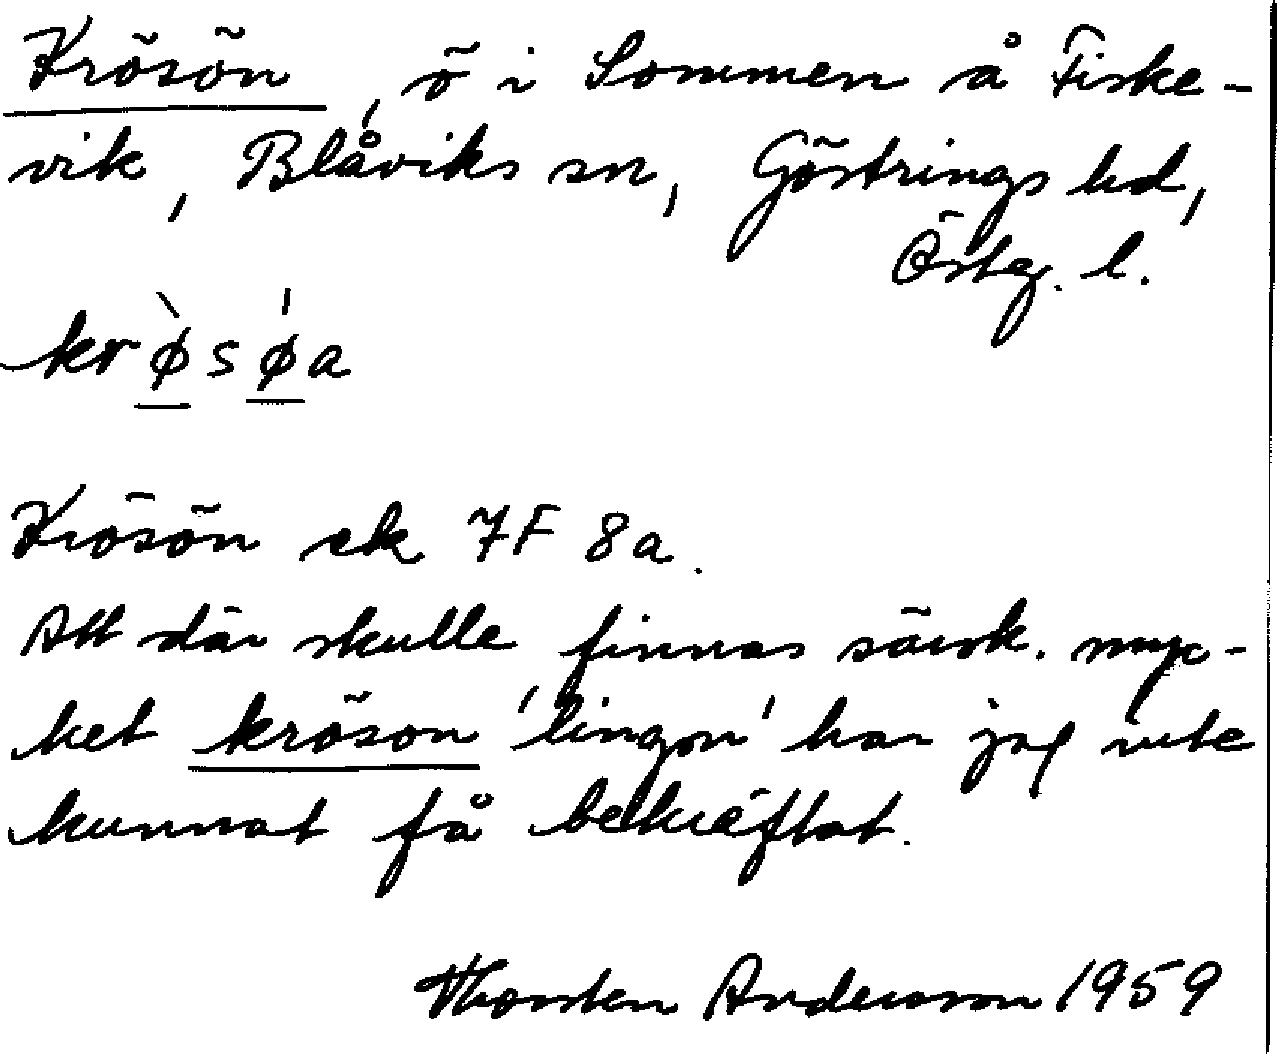 Krösön, ö i Sommen å Fiske-
vik, Blåviks sn, Göstrings hd,
Östg. l.
krø̀sǿa
Krösön ek 7F 8a.
Att där skulle finnas särsk. myc-
ket kröson 'lingon' har jag inte
kunnat få bekräftat.
Thorsten Andersson 1959